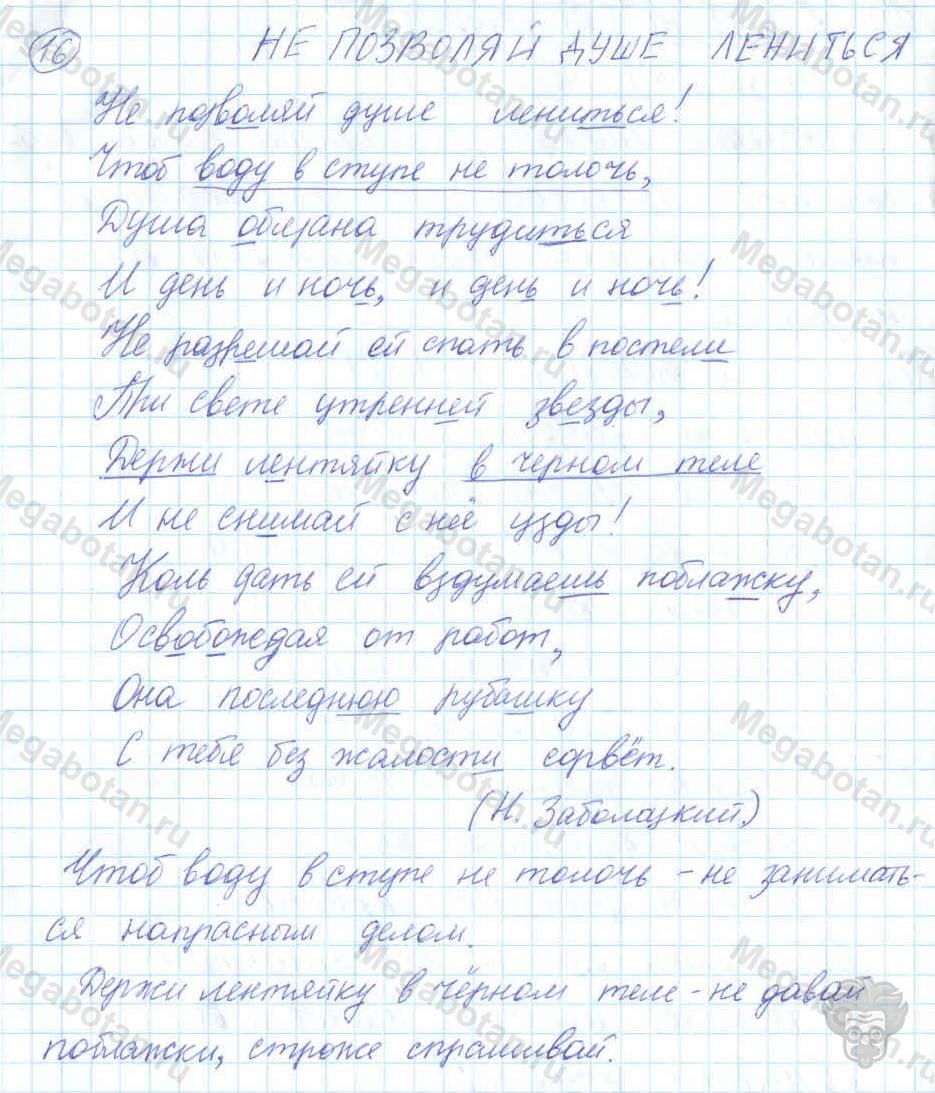 16 НЕ ПОЗВОЛЯЙ ДУШЕ ЛЕНИТЬСЯ
Не позволяй душе лениться!
Чтоб воду в ступе не толочь,
Душа обязана трудиться
И день и ночь, и день и ночь!
Не разрешай ей спать в постели
При свете утренней звезды,
Держи лентяйку в черном теле
И не снимай с неё узды!
Коль дать ей вздумаешь поблажку,
Освобождая от работ,
Она последнюю рубашку
С тебя без жалости сорвёт.
(Н. Заболоцкий.)
Чтоб воду в ступе не толочь - не занимать-
ся напрасным делом.
Держи лентяйку в чёрном теле - не давай
поблажки, строже спрашивай.
Megabotan.ru